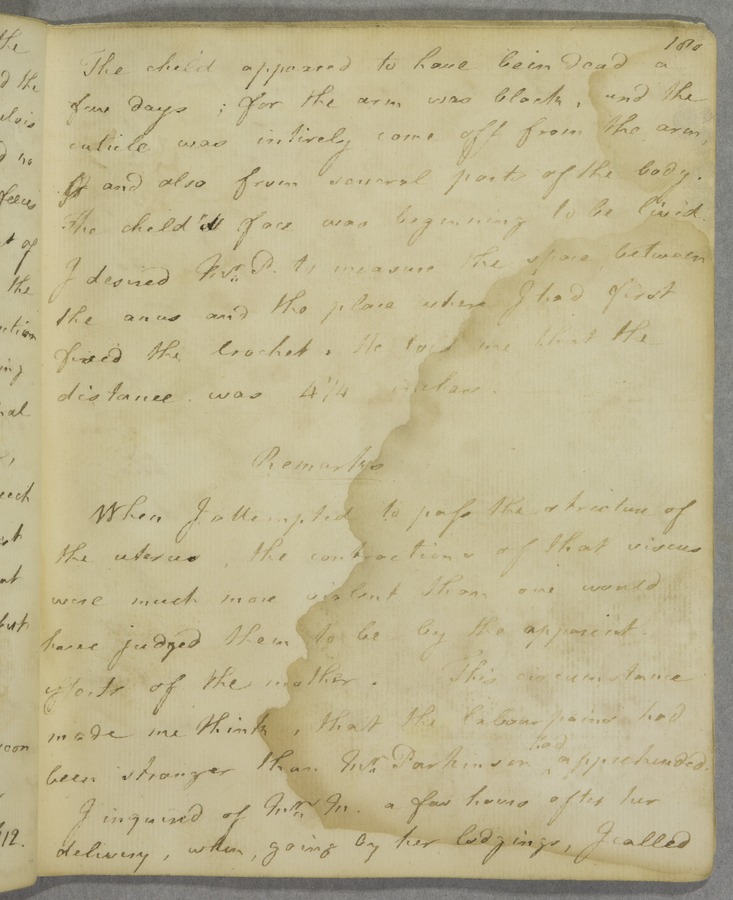 180
The child appeared to have been dead a
few days ; for the arm was black, and the
cuticle was intirely come off from the arm,
and also from several parts of the body.
The child's face was beginning to be livid.
I desired Mr. P. to measure the space between
the anus and the place where I had first
fixed the Crochet. He told me that the
distance was 4 1/4 inches.
Remarks
When I attempted to pass the stricture of
the uterus, the contractions of that viscus
were much more violent than one would
have judged them to be by the apparent
efforts of the mother. This circumstance
made me think, that the labour pains had
had
been stronger than Mr. Parkinson ^ apprehended.
I inquired of Mrs. M. a few hours after her
delivery, when, going by her lodgings, I called